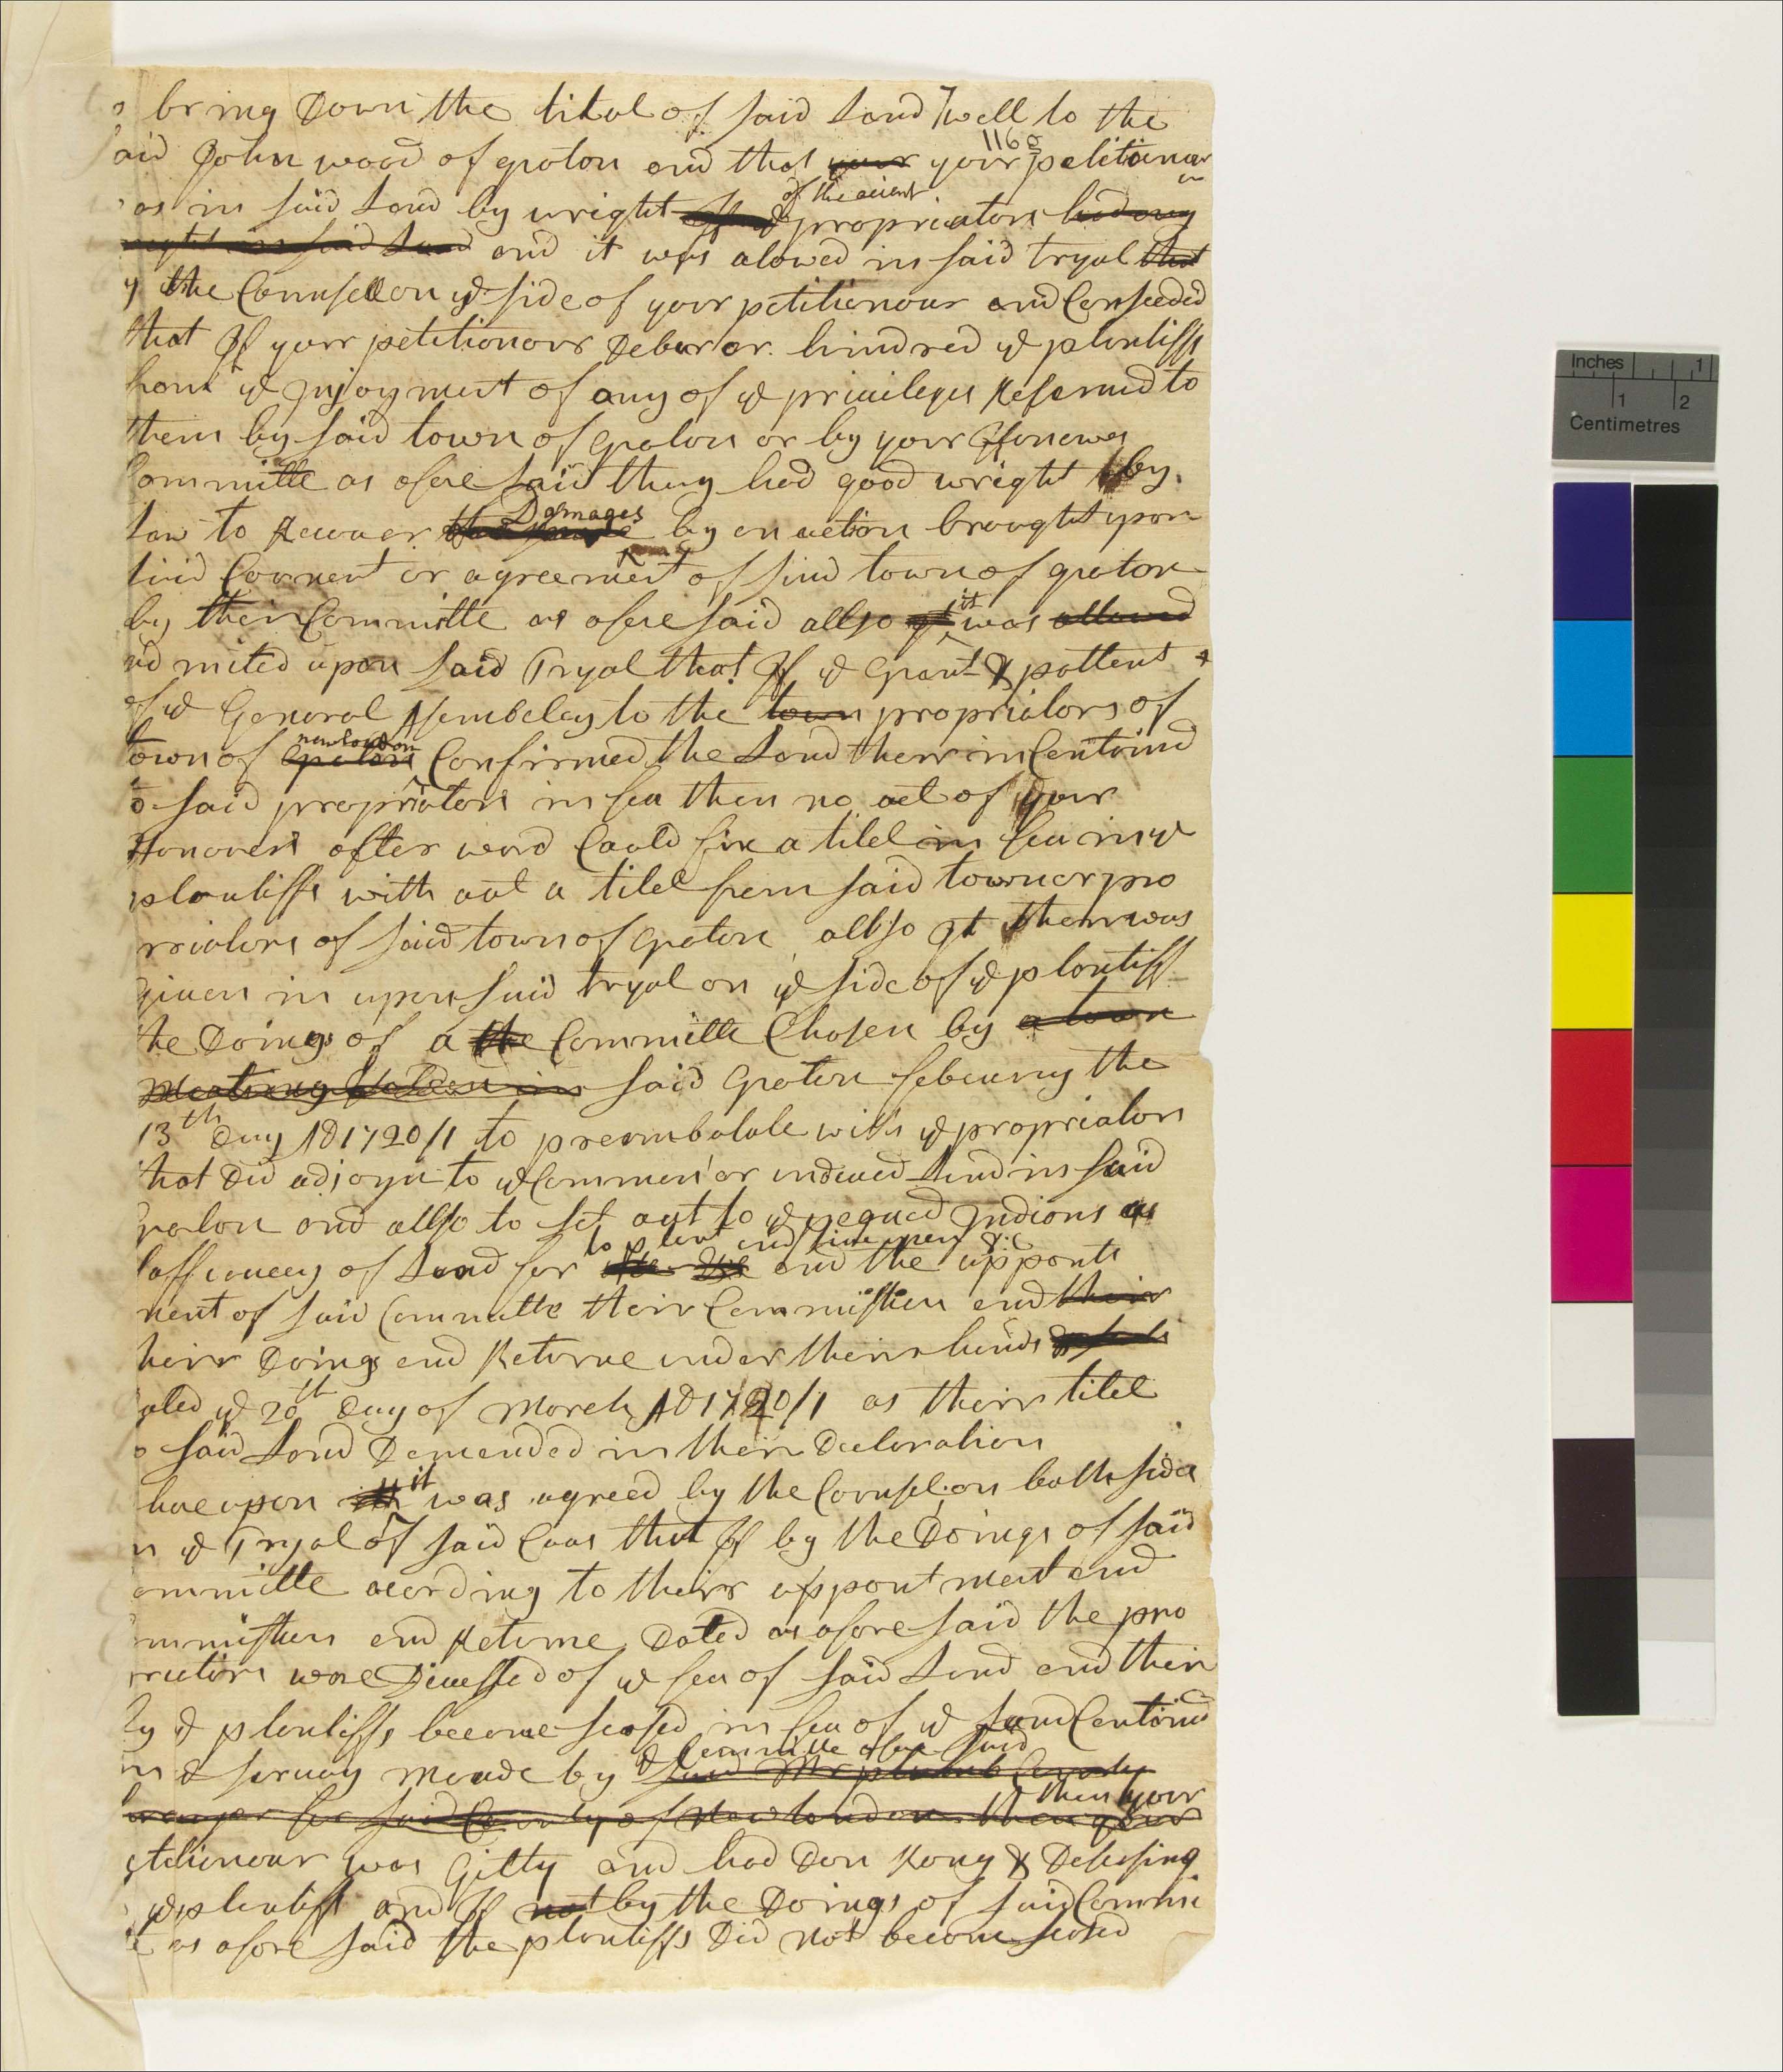 bring Down the tital of said Land well to the
116
aid John wood of groton and that your your petitionar
as in said Land by wright of the acient propriators had any
right in said Land and it was alowed in said tryal that
y the Counsell on ye side of your petitionour and Conseeded
that If your petitionour Debar or hindred ye plantiffs
from ye Injoyment of any of ye priuileges Reserued to
them by said town of groton or by your Honowrs
Committe as afore said they had good wright by
Law to Recouer Damages by an action brought upon
said Couenent or agreement of said town of groton
by their Committe as afore said allso it was allowed
ad mited upon said Tryal that If ye grant & pattent
of ye General Asembeley to the town propriators of
town of groton newlondon Confirmed the Land therr in Centaind
o said propriators in fea then no act of your
Honouers after ward Could fix a titel in fea in ye
plantiffs with out a titel from said town or pro
rriators of said town of groton allso It therr was
giuen in upon said tryal on ye side of ye plantiff
the Doings of a the Committe Chosen by a town
Meeting Holden in said groton febeuary the
13th Day AD 1720/1 to preambalate with ye propriators
that Did adjoyn to ye Common or undeued Land in said
groton and allso to set out to ye pequed Indions a
to plant and liue upon &c
saffiencey of Land for the Use and the apponte
ment of said Committe their Commission and their
heirr Doings and Returne under theirr hands
ated ye 20th Day of March AD 1720/1 as theirr titel
o said Land Demanded in their Declaration
hare upon it was agreed by the Counsel on both sides
n ye Tryal of said Caas that If by the Doings of said
ommitte acording to theirr appontment and
ommission and Returne Dated as afore said the pro
rriators ware Diuested of ye fea of said Land and their
by ye plantiffs become seased in fea of ye Land Centaind
in ye saruay meade by ye Committe afore said said Mr plumb County
saruayer for said County of New london then your then your
etitionour was Gilty and had Don Rong & Desesing
ye plantiff and If not by the Doings of said Commi
te as afore said the plantiffs Did not become seased